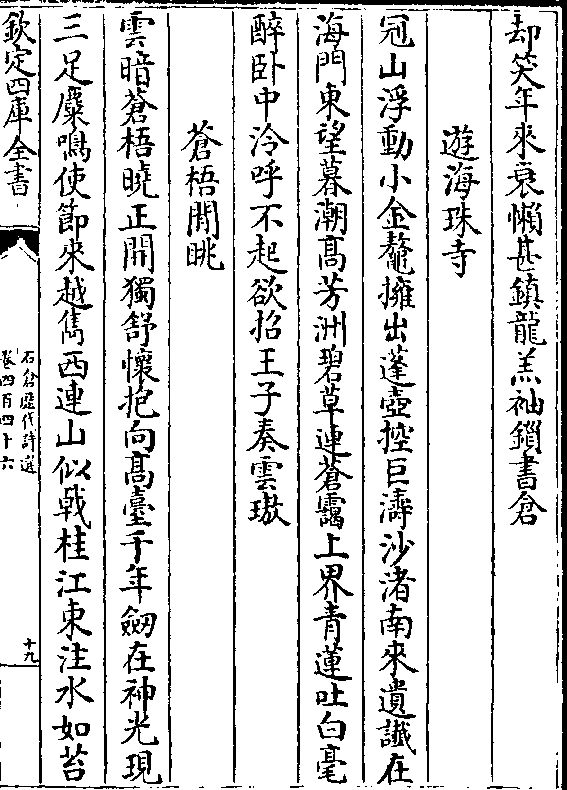 却笑年來衰懶甚鎮龍羔袖鎖書倉
遊海珠寺
冠山浮動小金鼇擁出蓬壺控巨濤沙渚南來遺讖在
海門東望暮潮髙芳洲碧草連蒼靄上界青蓮吐白毫
醉卧中泠呼不起欲招王子奏雲璈
蒼梧閒眺
雲暗蒼梧曉正開獨舒懷抱向髙臺千年劒在神光現
三足麋鳴使節來越雋西連山似㦸桂江東注水如苔
欽定四庫全書
石倉歴代詩選
卷四百四十六
十九